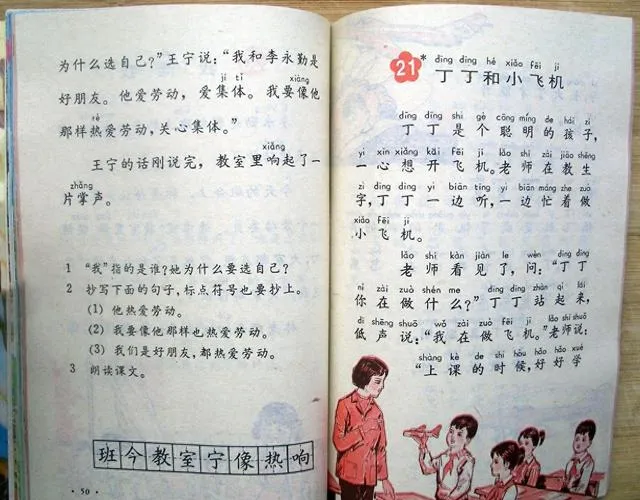 为什么选自己?”王宁说:“我和李永勤是
jí tǐ xiàng
好朋友。他爱劳动,爱集体。我要像他
rè
那样热爱劳动,关心集体。”
xiǎng
王宁的话刚说完,教室里响起了一
zhǎng
片掌声。
1 “我”指的是谁?她为什么要选自己?
2 抄写下面的句子,标点符号也要抄上。
(1) 他热爱劳动。
(2) 我要像他那样也热爱劳动。
(3) 我们是好朋友,都热爱劳动。
3 朗读课文。
班今教室宁像热响
·50·
dīng dīng hé xiǎo fēi jī
21* 丁丁和小飞机
dīng dīng shì gè cōng míng de hái zi
丁丁是个聪明的孩子,
yì xīn xiǎng kāi fēi jī lǎo shī zài jiāo shēng
一心想开飞机。老师在教生
zì dīng dīng yì biān tīng yì biān máng zhe zuò
字,丁丁一边听,一边忙着做
xiǎo fēi jī
小飞机。
lǎo shī kàn jiàn le wèn dīng dīng
老师看见了,问:“丁丁
nǐ zài zuò shén me dīng dīng zhàn qǐ lái
你在做什么?”丁丁站起来,
dī shēng shuō wǒ zài zuò fēi jī lǎo shī shuō
低声说:“我在做飞机。”老师说:
shàng kè de shí hòu hǎo hǎo xué
“上课的时候,好好学